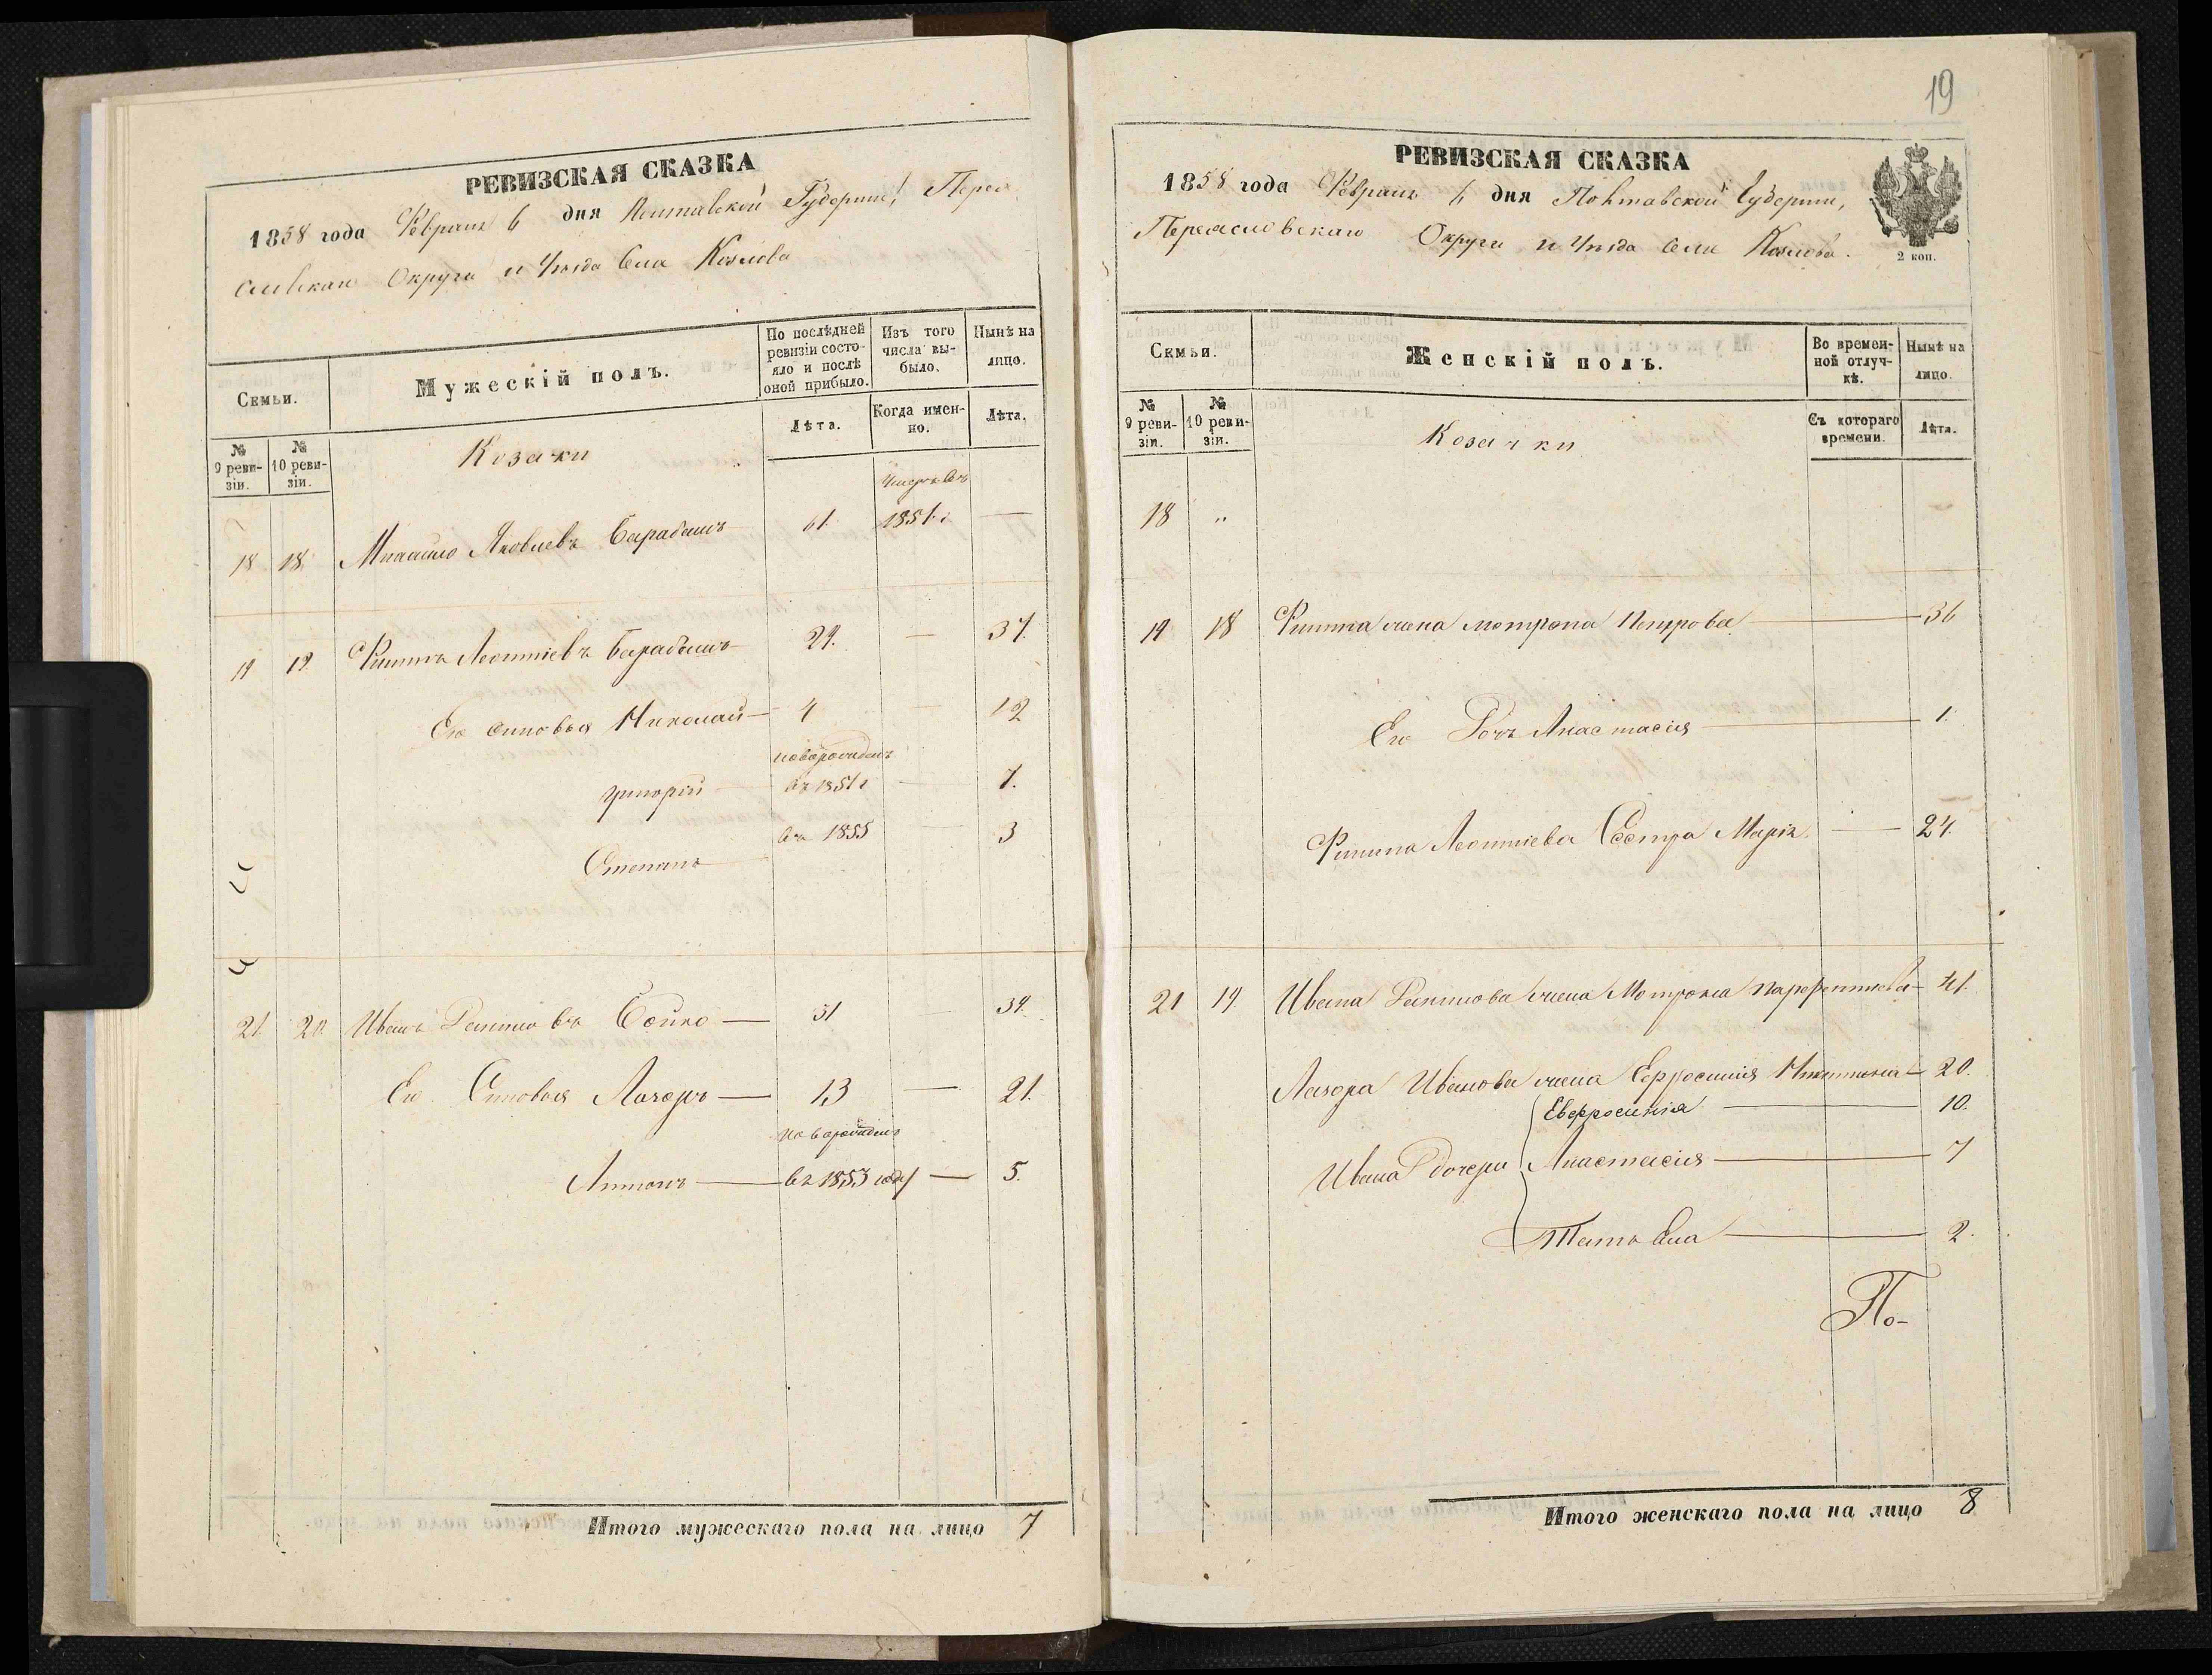 РЕВИЗСКАЯ СКАЗКА
1858 года Февраля 6 дня Полтавской Губернии, Перея
славскаго Округа и Уѣзда Села Козлова
Семьи.
Мужескій полъ.
По послѣдней ревизіи состояло и послѣ оной прибыло.
Изъ того числа выбыло.
Нынѣ на лицо.
№ 9 ревизіи.
№ 10 ревизіи.
Козаки
Лѣта.
Когда именно.
Лѣта.
18 18 Михайло Яковлевъ Барабашъ 61. умеръ въ 1851 г. —
19 19 Филипъ Леонтіевъ Барабашъ 29. — 37.
Его сыновья Николай — 4 — 12
новорожденъ
Григорій — въ 1851 г — 7.
Степанъ въ 1855 — 3
21. 20 Иванъ Бойко — 31 — 39.
Его Сыновья Лазорь — 13 — 21.
новорожденъ
Антонъ — въ 1853 году — 5.
Итого мужескаго пола на лицо 7
19
РЕВИЗСКАЯ СКАЗКА
1858 года Февраля 6 дня Полтавской Губернии,
Переяславскаго Округа и Уѣзда Села Козлова.
2 коп.
Семьи.
Женскій полъ.
Во временной отлучкѣ.
Нынѣ на лицо.
№ 9 ревизіи.
№ 10 ревизіи.
Козачки
Съ котораго времени.
Лѣта.
18 "
19 18 Филипа жена Мотрона Петрова — 36
Его Дочь Анастасія — 1.
Филипа Леонтіева Сестра Марія — 24.
21 19. Ивана жена Мотрона Парфентиева — 41.
Лазора Иванова жена Ефросинія Никитина — 20.
Евфросинія — 10.
Ивана дочери Анастасія — 7
Татьяна — 2.
По-
Итого женскаго пола на лицо 8